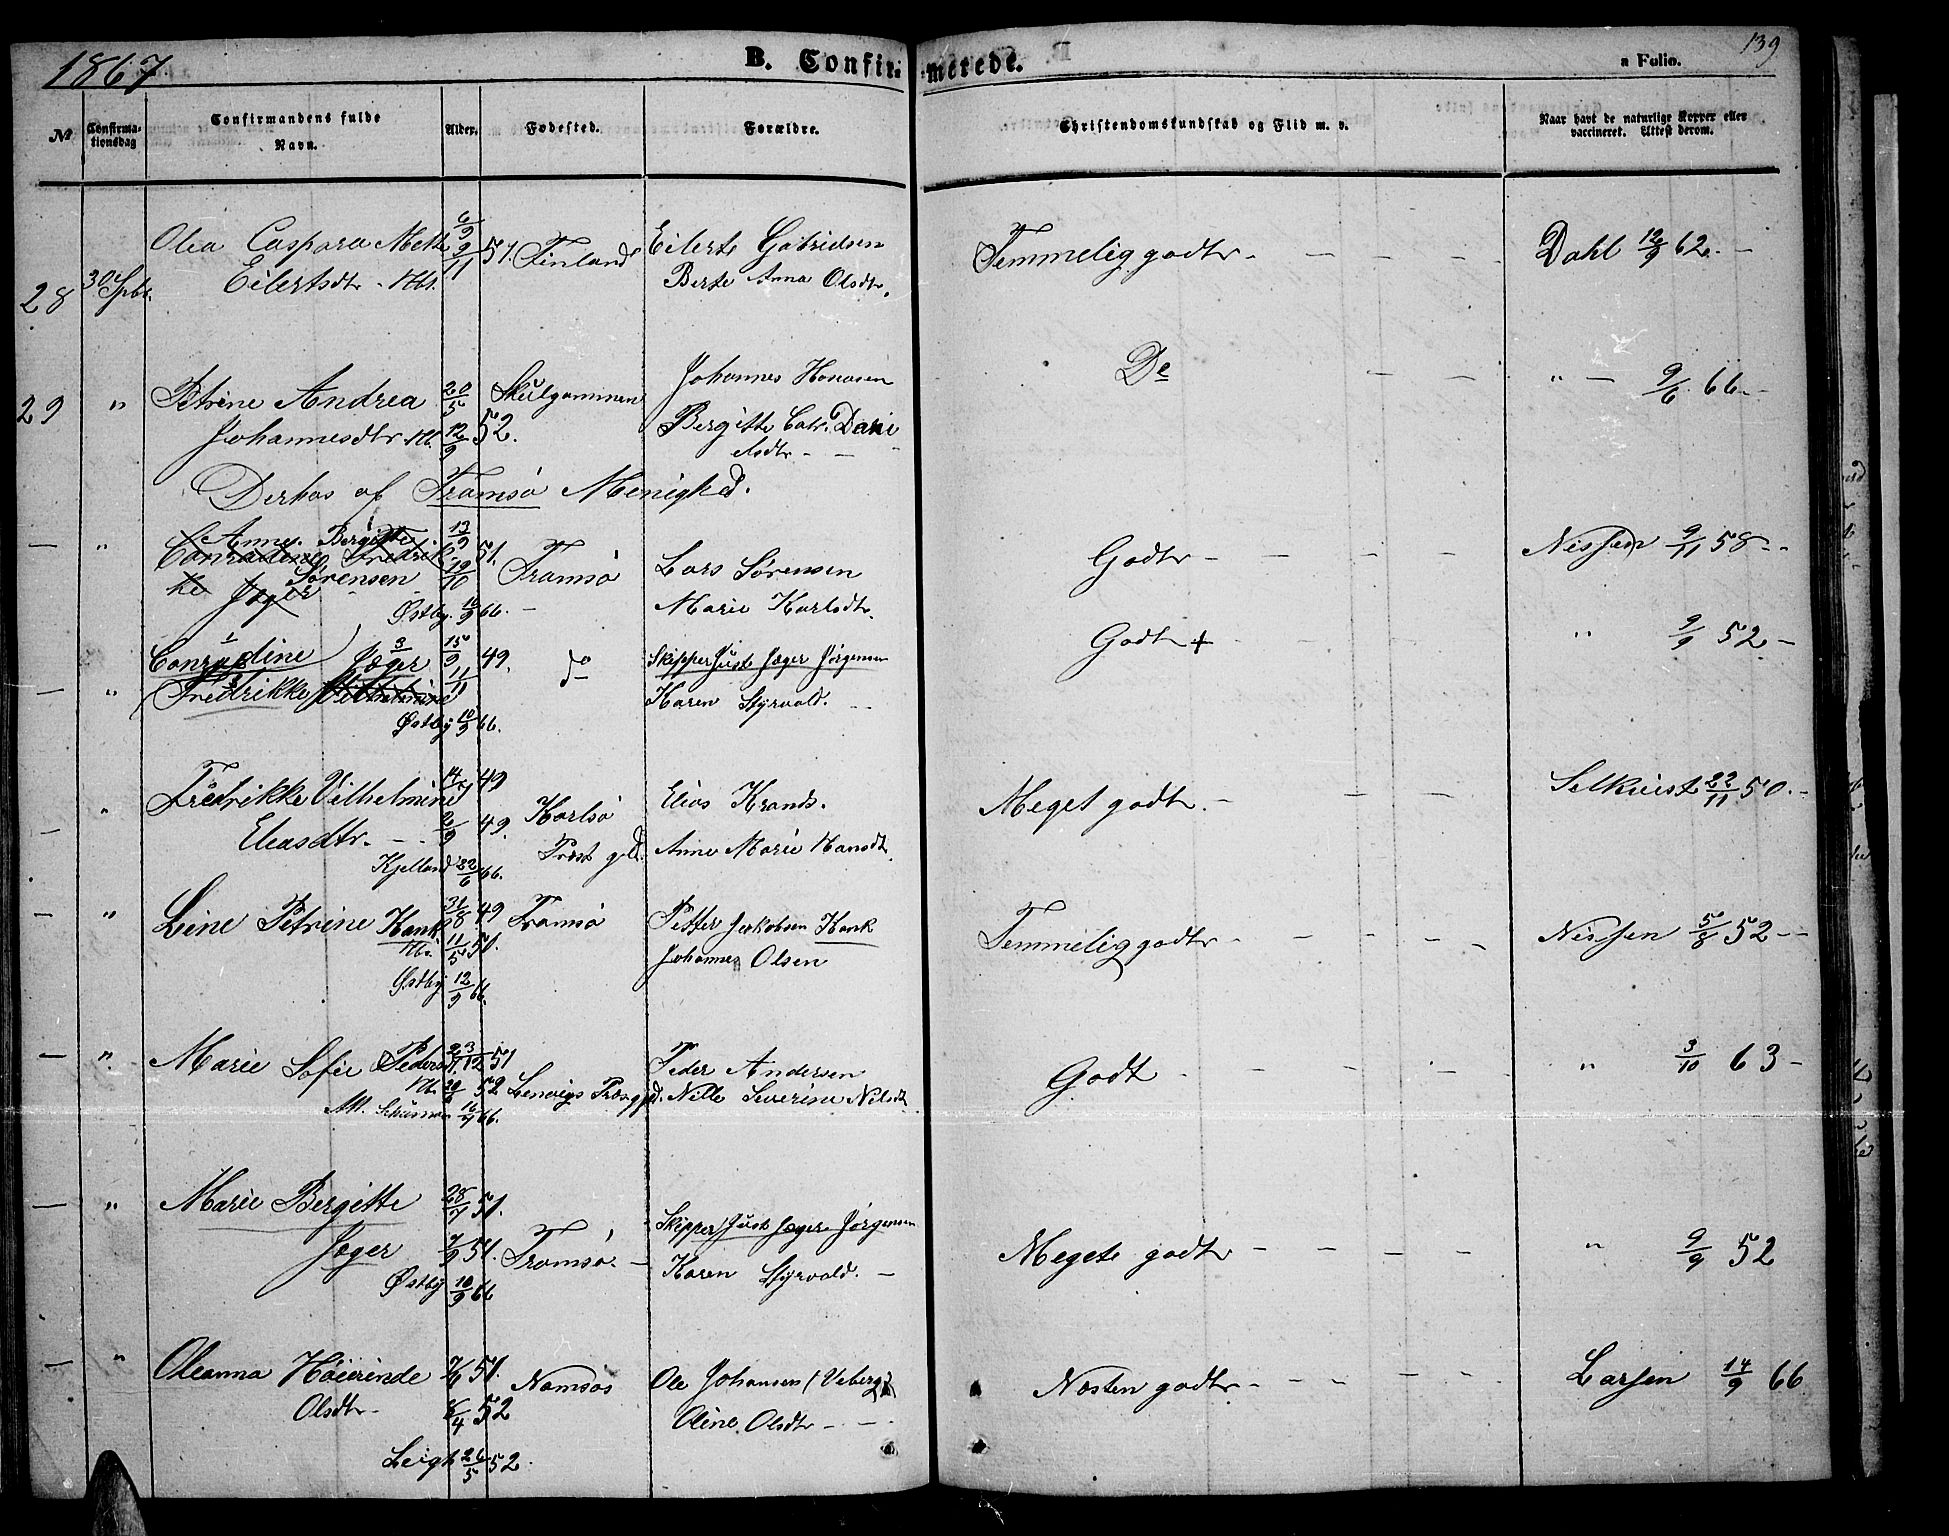 1867
B. Confir-
merede.
a Folio.
139
№
Confirma-
tionsdag
Confirmandens fulde
Navn.
Alder.
Fødested.
Forældre.
Christendomskundskab og Flid m. v.
Naar havt de naturlige Kopper eller
vaccineret. Attest derom.
28
30 Spbr.
Olea Caspara Mette
Eilertsdtr.
6/9
9/11 51.
Finland
Eilert
Berte Anna Olsdtr.
Temmelig godt
Dahl 12/9 62.
29
"
Petrine Andrea
Johannesdtr.
20/5
12/9 52.
Johannes
Bergitte Catr. Dani
elsdtr
Do
" 9/6 66
Derhos af Tromsø Menighed.
"
Anne Bergitte
Conradine Fredrik
ke Jæger Sørensen
13/9 51.
19/10
Østby 10/9 66.
Tromsø
Lars Sørensen
Marie Karlsdtr.
Godt
Nissen 9/11 58
"
1 Conradine 3 Jæger
2 Fredrikke Vilhelmine
15/9 49.
11/11
Østby 10/9 66.
do
Skipper Just Jæger Jørgensen
Karen Styrvold.
Godt +
" 9/9 52
"
Fredrikke Vilhelmine
Eleasdtr.
49
2/9 49.
Kjelland 22/6 66.
Karlsø
Præst gjd.
Elias Krands.
Anne Marie Hansdt.
Meget godt.
Selkvist 22/11 50.
"
Line Petrine Hank
31/8 49
11/5 51.
Østby 12/9 66.
Tromsø
Petter Jakobsen Hank
Johanne Olsen
Temmelig godt
Nissen 5/8 52
"
Marie Sofie Peders
51
52
16/9 66.
Lenvigs Præstgjd.
Peder Andersen
Nille Severine Nilsdt.
Godt
" 3/10 63
"
Marie Bergitte
Jæger
28/7 51.
7/9 51.
Østby 10/9 66
Tromsø.
Skipper Just Jæger Jørgensen
Karen Styrvold.
Meget godt
" 9/9 52
"
Oleanna Høierinde
Olsdtr.
51.
6/4 52
Leigh 26/5 52.
Namsos
Ole Johansen (Veberg)
Oline Olsdtr
Næsten godt
Larsen 14/9 66